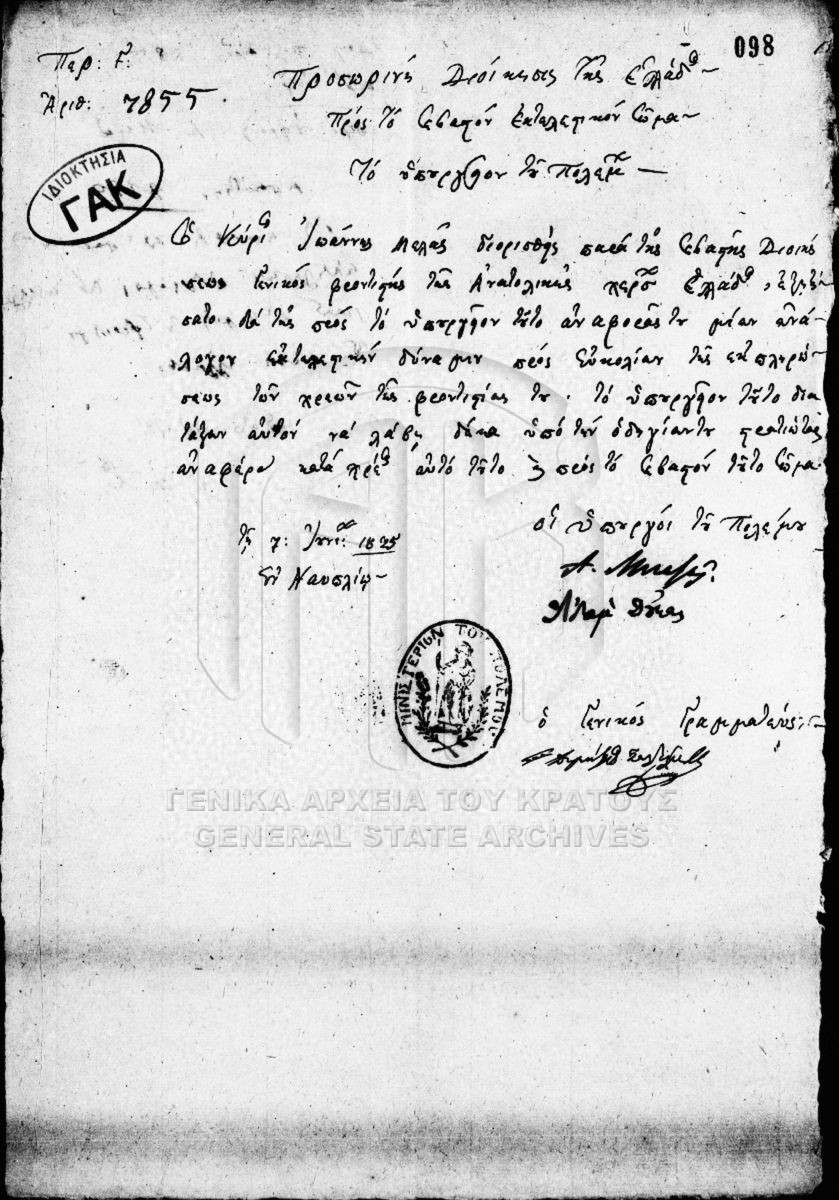 098
Περ: Γ:
Ἀριθ: 7855.
Προσωρινὴ Διοίκησις τῆς Ἑλλάδος
Πρὸς τὸ Σεβαστὸν Ἐκτελεστικὸν Σῶμα
Τὸ ὑπουργεῖον τοῦ Πολέμου
ΙΔΙΟΚΤΗΣΙΑ
ΓΑΚ
Ὁ Κύριος Ἰωάννης Μελᾶς διορισθεὶς παρὰ τῆς Σεβαστῆς Διοική
σεως Γενικὸς φροντιστὴς τῆς Ἀνατολικῆς χέρσου Ἑλλάδος,
διὰ τῆς πρὸς τὸ ὑπουργεῖον τοῦτο ἀναφορᾶς του μίαν ἀνά
λογον ἐκτελεστικὴν δύναμιν πρὸς εὐκολίαν τῆς ἐκπληρώ
σεως τῶν χρεῶν τῆς φροντιστίας του. τὸ ὑπουργεῖον τοῦτο δια
τάξαν αὐτὸν νὰ λάβῃ δέκα ὑπὸ τὴν ὁδηγίαν του στρατιώτας
ἀναφέρει κατὰ χρέος αὐτὸ τοῦτο καὶ πρὸς τὸ Σεβαστὸν τοῦτο Σῶμα.
τῇ 7: Ἰουνίου: 1825
Ἐν Ναυπλίῳ
οἱ ὑπουργοὶ τοῦ Πολέμου
Ἀδὰμ Δούκας
ΜΙΝΙΣΤΕΡΙΟΝ ΤΟΥ ΠΟΛΕΜΟΥ
ὁ Γενικὸς Γραμματεύς
ΓΕΝΙΚΑ ΑΡΧΕΙΑ ΤΟΥ ΚΡΑΤΟΥΣ
GENERAL STATE ARCHIVES